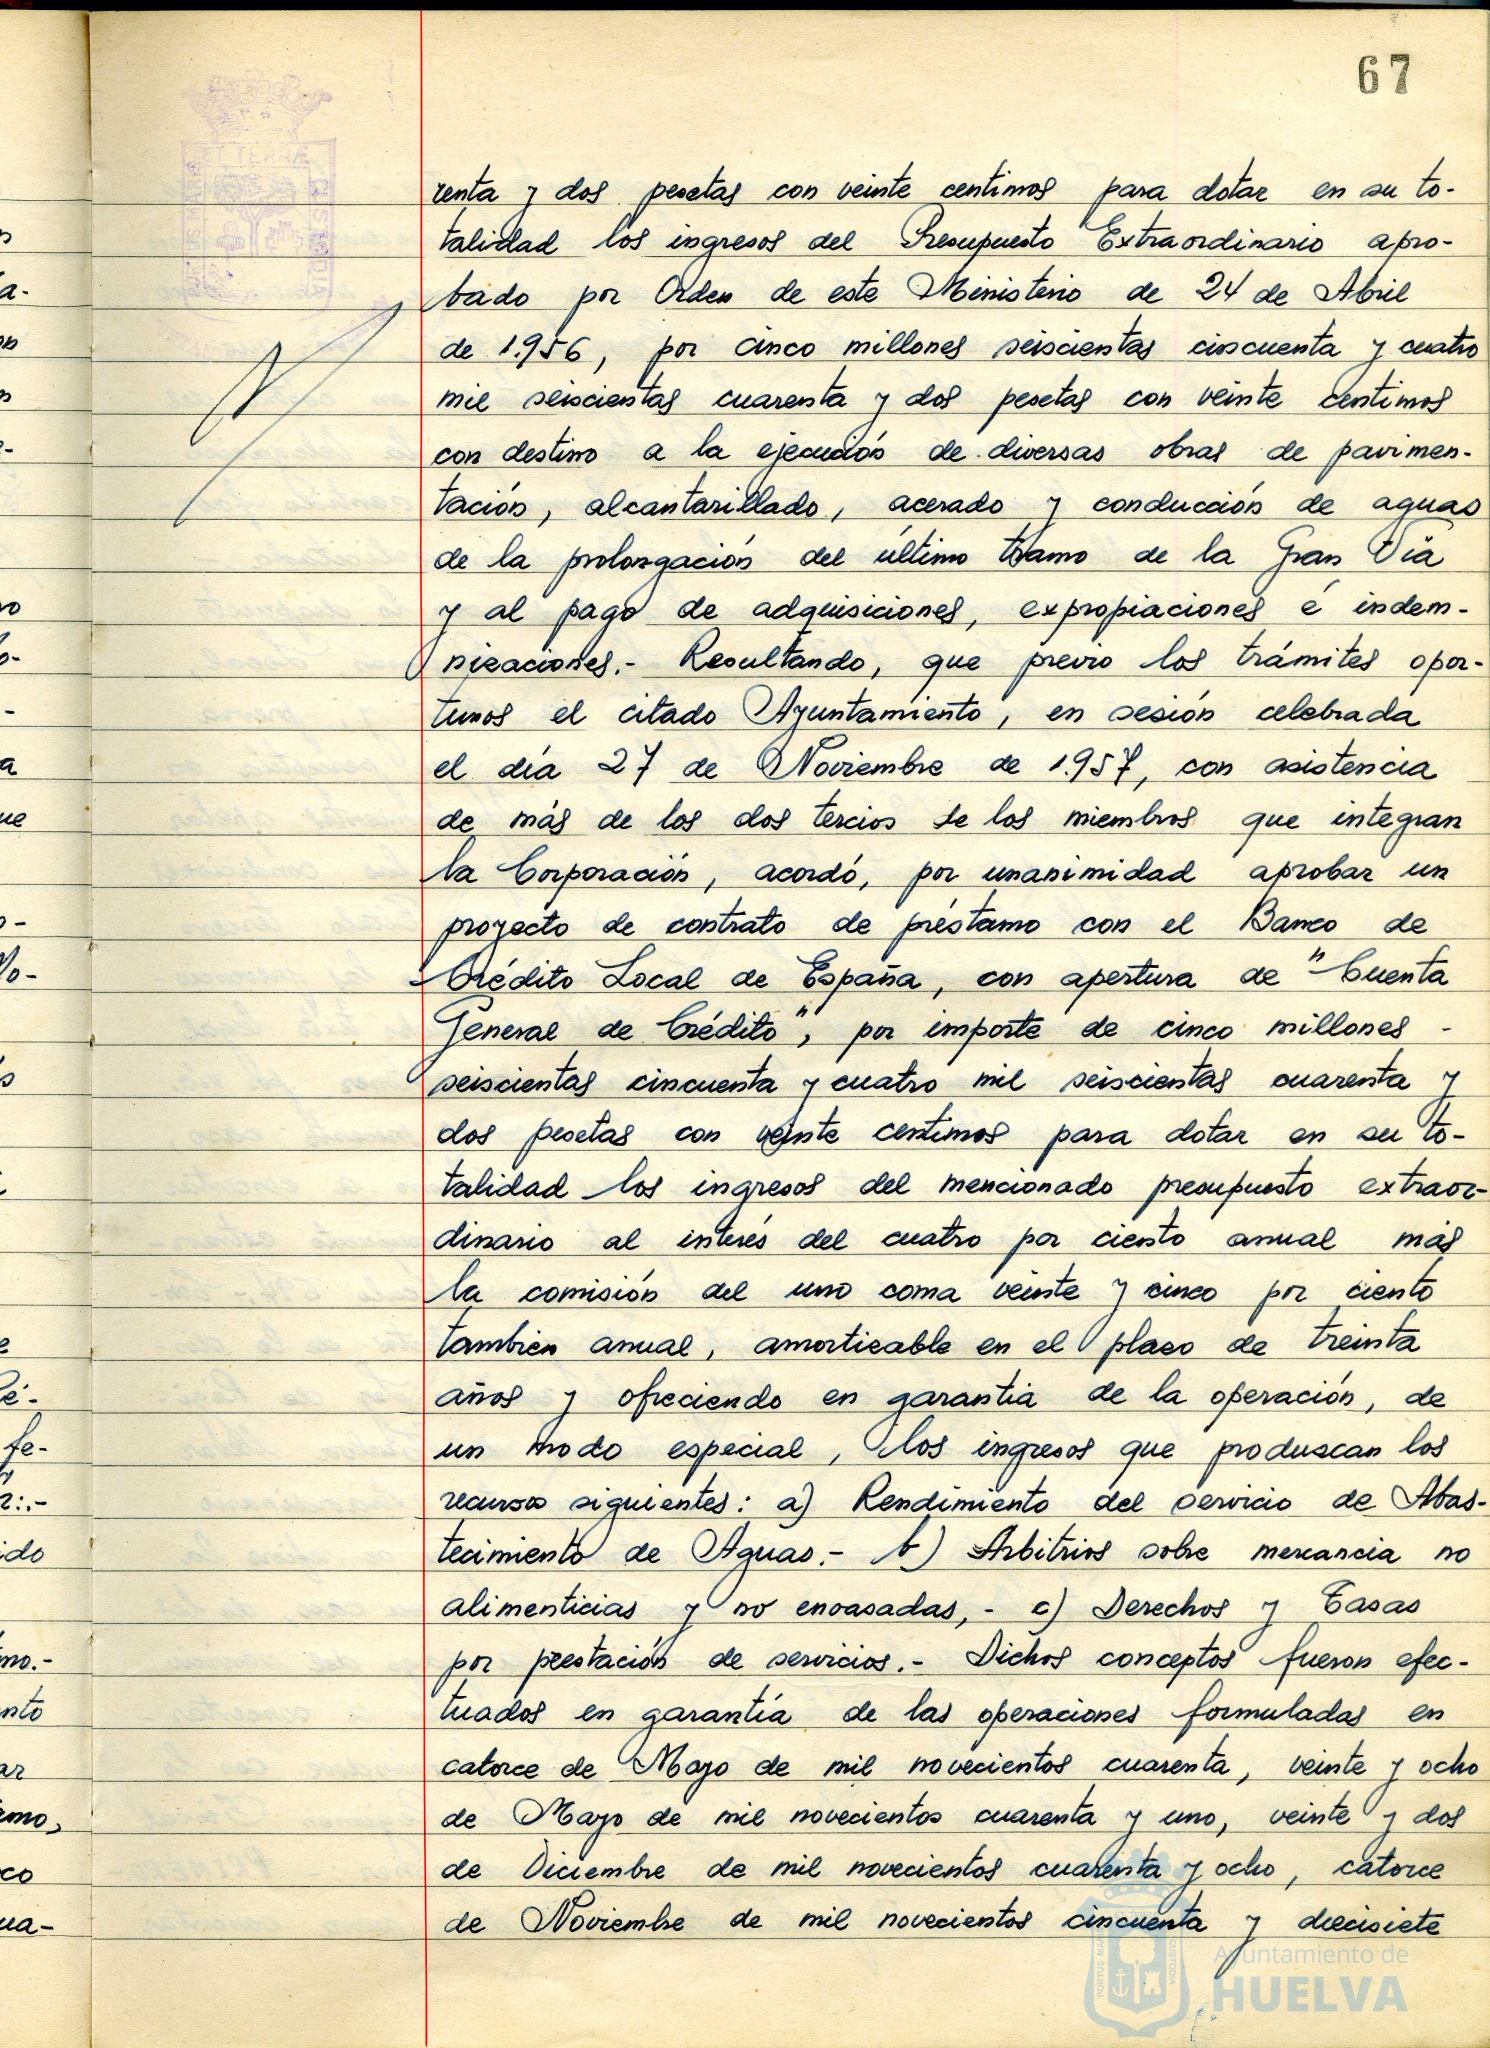 67
renta y dos pesetas con veinte centimos para dotar en su to-
talidad los ingresos del Presupuesto Extraordinario apro-
bado por Orden de este Ministerio de 24 de Abril
de 1.956, por cinco millones seiscientas cincuenta y cuatro
mil seiscientas cuarenta y dos pesetas con veinte centimos
con destino a la ejecución de diversas obras de pavimen-
tación, alcantarillado, acerado y conducción de aguas
de la prolongación del último tramo de la Gran Via
y al pago de adquisiciones, expropiaciones é indem-
nizaciones.- Resultando, que previo los trámites opor-
tunos el citado Ayuntamiento, en sesión celebrada
el día 27 de Noviembre de 1.957, con asistencia
de más de los dos tercios de los miembros que integran
la Corporación, acordó, por unanimidad aprobar un
proyecto de contrato de préstamo con el Banco de
Crédito Local de España, con apertura de "Cuenta
General de Crédito", por importe de cinco millones -
seiscientas cincuenta y cuatro mil seiscientas cuarenta y
dos pesetas con veinte centimos para dotar en su to-
talidad los ingresos del mencionado presupuesto extraor-
dinario al interés del cuatro por ciento anual más
la comisión del uno coma veinte y cinco por ciento
tambien anual, amortizable en el plazo de treinta
años y ofreciendo en garantia de la operación, de
un modo especial, los ingresos que produzcan los
recursos siguientes: a) Rendimiento del servicio de Abas-
tecimiento de Aguas.- b) Arbitrios sobre mercancia no
alimenticias y no envasadas,- c) Derechos y Tasas
por prestación de servicios.- Dichos conceptos fueron efec-
tuados en garantía de las operaciones formuladas en
catorce de Mayo de mil novecientos cuarenta, veinte y ocho
de Mayo de mil novecientos cuarenta y uno, veinte y dos
de Diciembre de mil novecientos cuarenta y ocho, catorce
de Noviembre de mil novecientos cincuenta y diecisiete
Ayuntamiento de
HUELVA